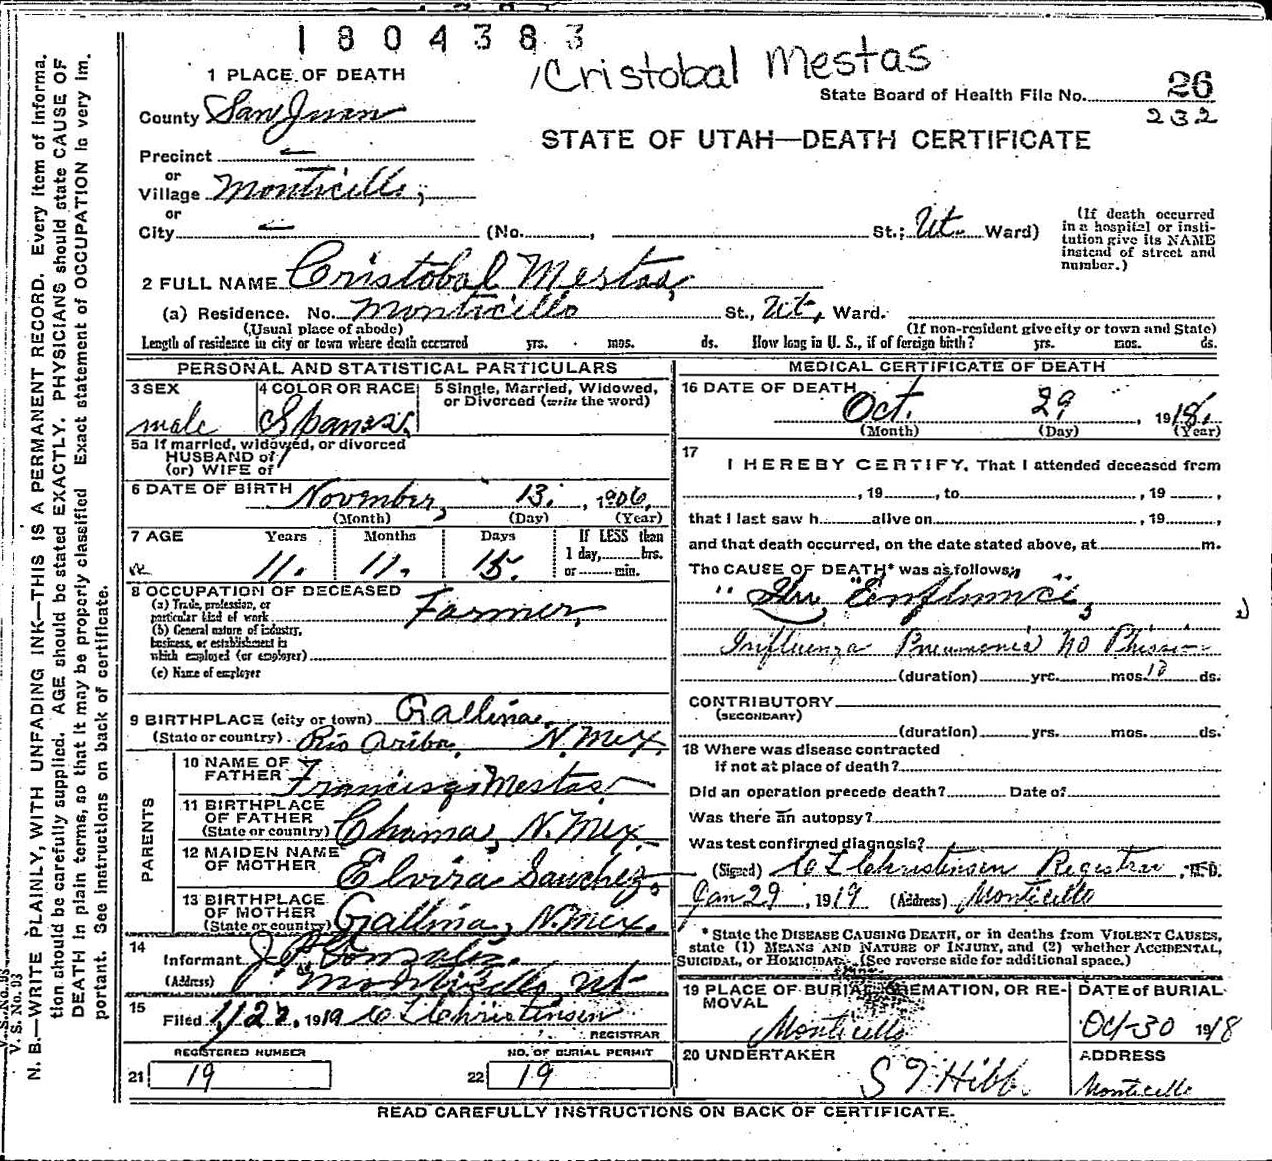 1804383
Cristobal Mestas
1 PLACE OF DEATH
State Board of Health File No. 26
232
County San Juan
STATE OF UTAH—DEATH CERTIFICATE
Precinct —
or
Village Monticello,
or
City — (No. , St.; Ut. Ward)
(If death occurred
in a hospital or insti-
tution give its NAME
instead of street and
number.)
2 FULL NAME Cristobal Mestas,
(a) Residence. No. Monticello St., Ut, Ward.
(Usual place of abode) (If non-resident give city or town and State)
Length of residence in city or town where death occurred yrs. mos. ds. How long in U. S., if of foreign birth? yrs. mos. ds.
PERSONAL AND STATISTICAL PARTICULARS
3 SEX 4 COLOR OR RACE 5 Single, Married, Widowed,
or Divorced (write the word)
male
5a If married, widowed, or divorced
HUSBAND of
(or) WIFE of
6 DATE OF BIRTH November, 13. , 1906,
(Month) (Day) (Year)
7 AGE Years Months Days If LESS than
1 day, hrs.
or min.
11. 11. 15.
8 OCCUPATION OF DECEASED
(a) Trade, profession, or
particular kind of work Farmer,
(b) General nature of industry,
business, or establishment in
which employed (or employer)
(c) Name of employer
9 BIRTHPLACE (city or town) Gallina,
(State or country) Rio Ariba, N. Mex.
PARENTS
10 NAME OF
FATHER Francisco Mestas
11 BIRTHPLACE
OF FATHER
(State or country) Chama, N. Mex.
12 MAIDEN NAME
OF MOTHER Elvira Sanchez,
13 BIRTHPLACE
OF MOTHER
(State or country) Gallina, N. Mex.
14
Informant J. P. Gonzales.
(Address) Monticello Ut
15
Filed 1/22, 1919 C L Christensen
REGISTRAR
REGISTERED NUMBER NO. OF BURIAL PERMIT
21 19 22 19
MEDICAL CERTIFICATE OF DEATH
16 DATE OF DEATH Oct. 29 1918.
(Month) (Day) (Year)
17
I HEREBY CERTIFY, That I attended deceased from
, 19 , to , 19 ,
that I last saw h alive on , 19 ,
and that death occurred, on the date stated above, at m.
The CAUSE OF DEATH* was as follows:
Influenza Pneumonia No
(duration) yrs. mos. 10 ds.
CONTRIBUTORY
(SECONDARY)
(duration) yrs. mos. ds.
18 Where was disease contracted
if not at place of death?
Did an operation precede death? Date of
Was there an autopsy?
Was test confirmed diagnosis?
(Signed) C L Christensen Registrar, M.D.
Jan 29, 1919 (Address) Monticello
* State the DISEASE CAUSING DEATH, or in deaths from VIOLENT CAUSES,
state (1) MEANS AND NATURE OF INJURY, and (2) whether ACCIDENTAL,
SUICIDAL, or HOMICIDAL. (See reverse side for additional space.)
19 PLACE OF BURIAL, CREMATION, OR RE-
MOVAL
Monticello
DATE of BURIAL
Oct-30 1918
20 UNDERTAKER
ADDRESS
Monticello
READ CAREFULLY INSTRUCTIONS ON BACK OF CERTIFICATE.
V. S. No. 93
N. B.—WRITE PLAINLY, WITH UNFADING INK—THIS IS A PERMANENT RECORD. Every item of informa-
tion should be carefully supplied. AGE should be stated EXACTLY. PHYSICIANS should state CAUSE OF
DEATH in plain terms, so that it may be properly classified Exact statement of OCCUPATION is very im-
portant. See instructions on back of certificate.